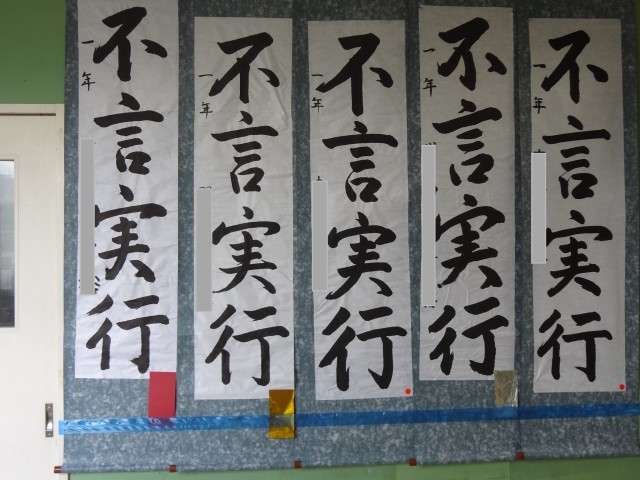 不言実行
一年
不言実行
一年
不言実行
一年
不言実行
一年
不言実行
一年